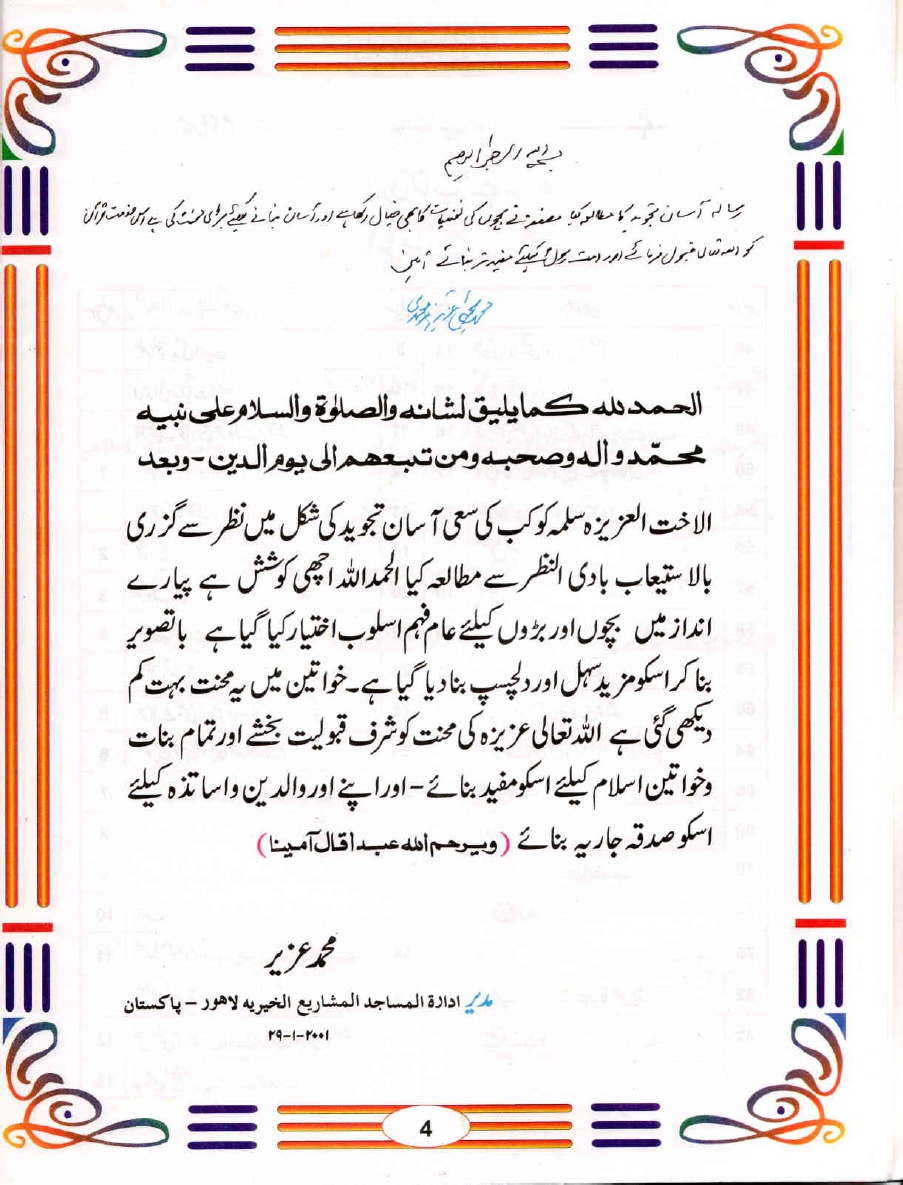 بسم اللہ الرحمن الرحیم
رسالہ آسان تجوید کا مطالعہ کیا مصنفہ نے بچوں کی نفسیات کا بھی خیال رکھا ہے اور آسان بنانے کیلئے بڑی محنت کی ہے اس خدمت قرآن
کو اللہ تعالیٰ قبول فرمائے اور امت کیلئے مفید تر بنائے آمین
الحمد للہ کما یلیق لشانہ والصلوٰة والسلام علی نبیہ
محمّد و آلہ و صحبہ ومن تبعھم الی یوم الدین - وبعد
الاخت العزیزہ سلمہ کوکب کی سعی آسان تجوید کی شکل میں نظر سے گزری
بالاستیعاب بادی النظر سے مطالعہ کیا الحمد اللہ اچھی کوشش ہے پیارے
انداز میں بچوں اور بڑوں کیلئے عام فہم اسلوب اختیار کیا گیا ہے باتصویر
بنا کر اسکو مزید سہل اور دلچسپ بنا دیا گیا ہے۔ خواتین میں یہ محنت بہت کم
دیکھی گئی ہے اللہ تعالی عزیزہ کی محنت کو شرف قبولیت بخشے اور تمام بنات
وخواتین اسلام کیلئے اسکو مفید بنائے - اور اپنے اور والدین واساتذہ کیلئے
اسکو صدقہ جاریہ بنائے (ویرحم اللہ عبدا قال آمینا)
محمد عزیر
مدیر ادارة المساجد المشاریع الخیریہ لاھور - پاکستان
۲۹-۱-۲۰۰۱
4